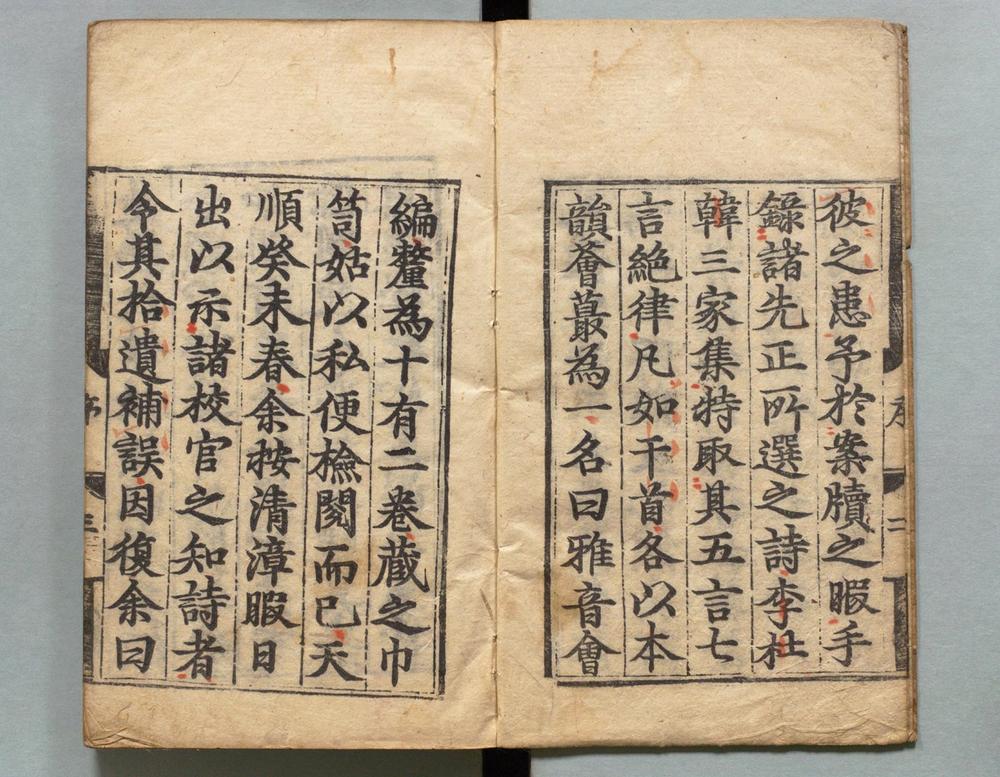 彼之患予於案牘之暇手
錄諸先正所選之詩李杜
韓三家集特取其五言七
言絕律凡如干首各以本
韻會蕞為一名曰雅音會
編釐為十有二卷藏之巾
笥姑以私便檢閱而已天
順癸未春余按清漳暇日
出以示諸校官之知詩者
令其拾遺補誤因復余曰
序
二
三